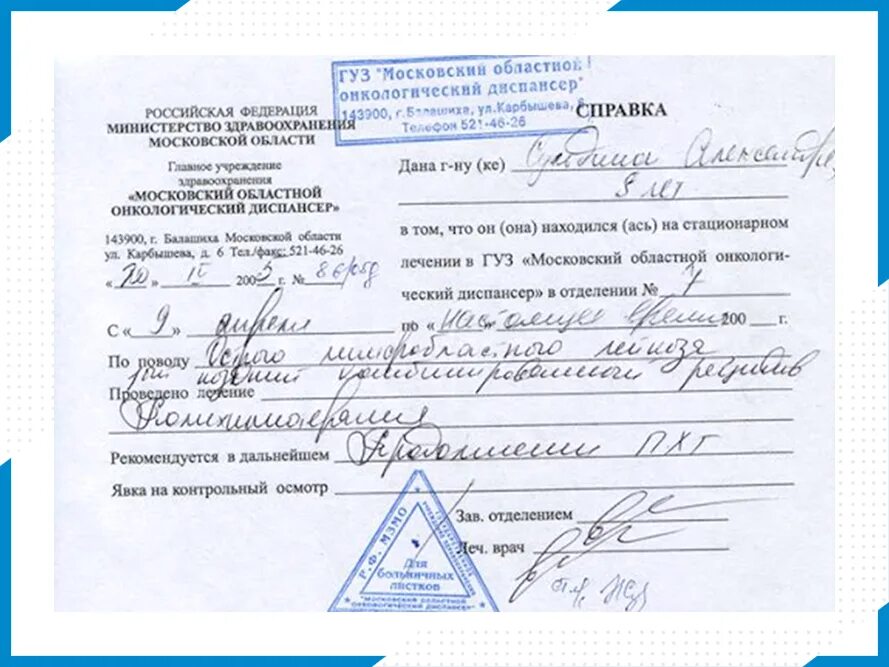 ГУЗ "Московский областной
онкологический диспансер"
143900, г. Балашиха, ул. Карбышева, 6
Телефон 521-46-26
РОССИЙСКАЯ ФЕДЕРАЦИЯ
МИНИСТЕРСТВО ЗДРАВООХРАНЕНИЯ
МОСКОВСКОЙ ОБЛАСТИ
Главное учреждение
здравоохранения
«МОСКОВСКИЙ ОБЛАСТНОЙ
ОНКОЛОГИЧЕСКИЙ ДИСПАНСЕР»
143900, г. Балашиха Московской области
ул. Карбышева, д. 6 Тел./факс: 521-46-26
«20» IV 2005 г. №
СПРАВКА
Дана г-ну (ке)
лет
в том, что он (она) находился (ась) на стационарном
лечении в ГУЗ «Московский областной онкологи-
ческий диспансер» в отделении № 7
С «9» апреля по «настоящее время 200 г.
По поводу Острого лимфобластного лейкоза
поздний комбинированный рецидив
Проведено лечение
Полихимиотерапия
Рекомендуется в дальнейшем Продолжении ПХТ
Явка на контрольный осмотр
Зав. отделением
Леч. врач
Р.Ф. МЗМО
Для
больничных
листков
"Московский областной
онкологический диспансер"